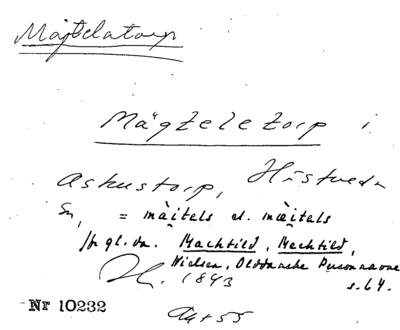 Mäjtelatorp
Mägtele torp i
Askustorp, Hästveda
Sn, = mäitels el. mæitels
jfr gl. da. Machtild, Mechtild,
Nielsen, Olddanske Personnavne
s. 64.
1843
Nr 10232